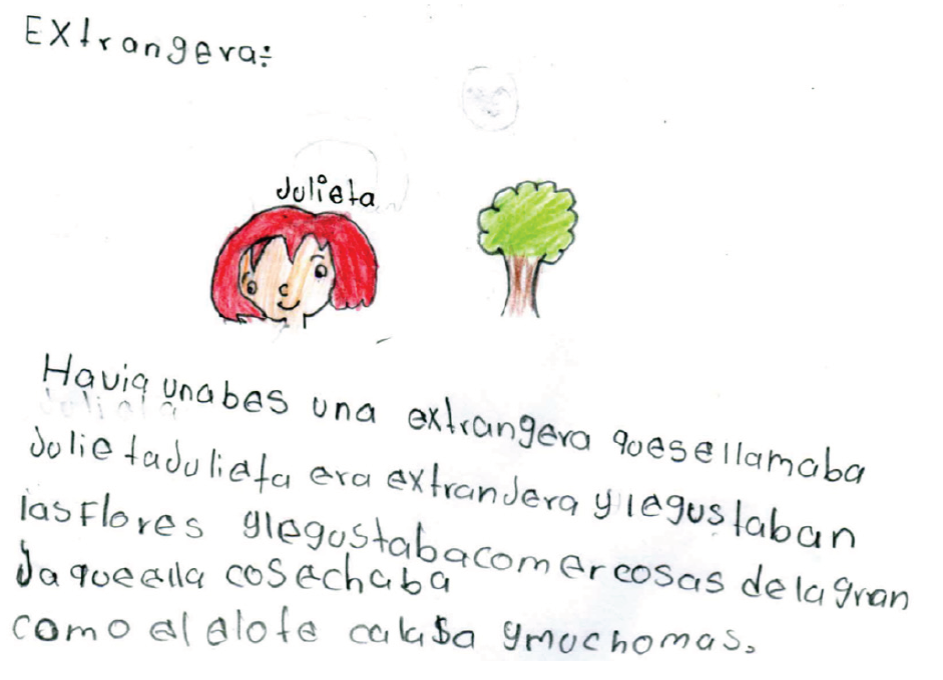 Extrangera:
Julieta
Havia unabes una extrangera quesellamaba
Julietadulieta era extranjera y legustaban
lasFlores ylegustabacomercosas de lagran
Jaqueella cosechaba
como el elote calasa ymuchomas.